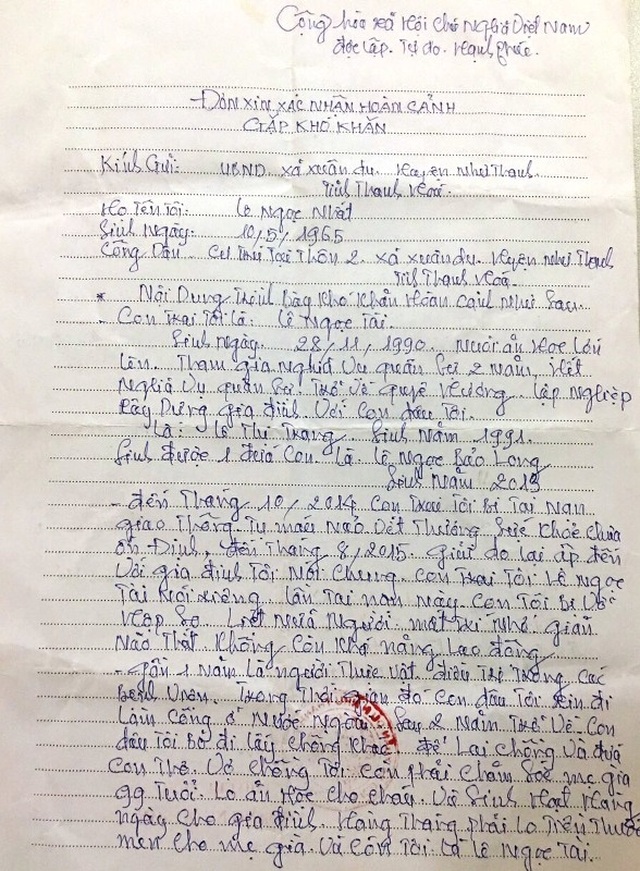 Cộng hòa xã Hội chủ Nghĩa Việt Nam
độc lập. Tự do. Hạnh phúc.
ĐƠN XIN XÁC NHẬN HOÀN CẢNH
GẶP KHÓ KHĂN
Kính Gửi: UBND. xã xuân du. Huyện Như Thanh.
Tỉnh Thanh Hoá.
Họ Tên Tôi: Lê Ngọc Nhất
Sinh Ngày: 10/5/1965
Công Dân Cư Trú Tại Thôn 2. xã xuân du. Huyện Như Thanh
Tỉnh Thanh Hoá.
* Nội Dung Trình bày Khó Khăn Hoàn Cảnh Như Sau.
- Con Trai Tôi là: Lê Ngọc Tài.
Sinh Ngày. 28/11/1990. Nuôi ăn Học Lớn
lên. Tham gia Nghĩa Vụ quân sự 2 Năm, Hết
Nghĩa Vụ quân sự. Trở Về quê Hương. Lập Nghiệp
Xây Dựng gia đình Với Con dâu Tôi.
Là: Lê Thị Trang. Sinh Năm 1991.
Sinh được 1 đứa Con. Là. Lê Ngọc Bảo Long
Sinh Năm 2013
- đến Tháng 10/2014 Con Trai Tôi Bị Tai Nạn
giao Thông Tụ máu Não Vết Thương Sức Khỏe chưa
ổn Định, đến Tháng 8/2015. lại ập đến
Với gia đình Tôi Nói Chung. Con Trai Tôi Lê Ngọc
Tài Nói riêng. Lần Tai nạn này Con Tôi Bị Vỡ
Hộp Sọ. Liệt Nửa Người. mất Trí Nhớ giãn
Não Thất. Không Còn Khả năng Lao động
- gần 1 Năm Là người Thực Vật điều Trị Trong Các
Bệnh Viện. Trong Thời gian đó Con dâu Tôi xin đi
Làm Công ở Nước Ngoài. Sau 2 Năm Trở Về Con
dâu Tôi Bỏ đi lấy Chồng Khác. để Lại Chồng Và đứa
Con Thơ. Vợ Chồng Tôi Còn phải Chăm Sóc mẹ già
99 Tuổi. Lo ăn Học Cho Cháu. Và Sinh Hoạt Hàng
ngày Cho gia đình. Hàng Tháng phải Lo Tiền Thuốc
men Cho mẹ già. Và Con Tôi Là Lê Ngọc Tài.